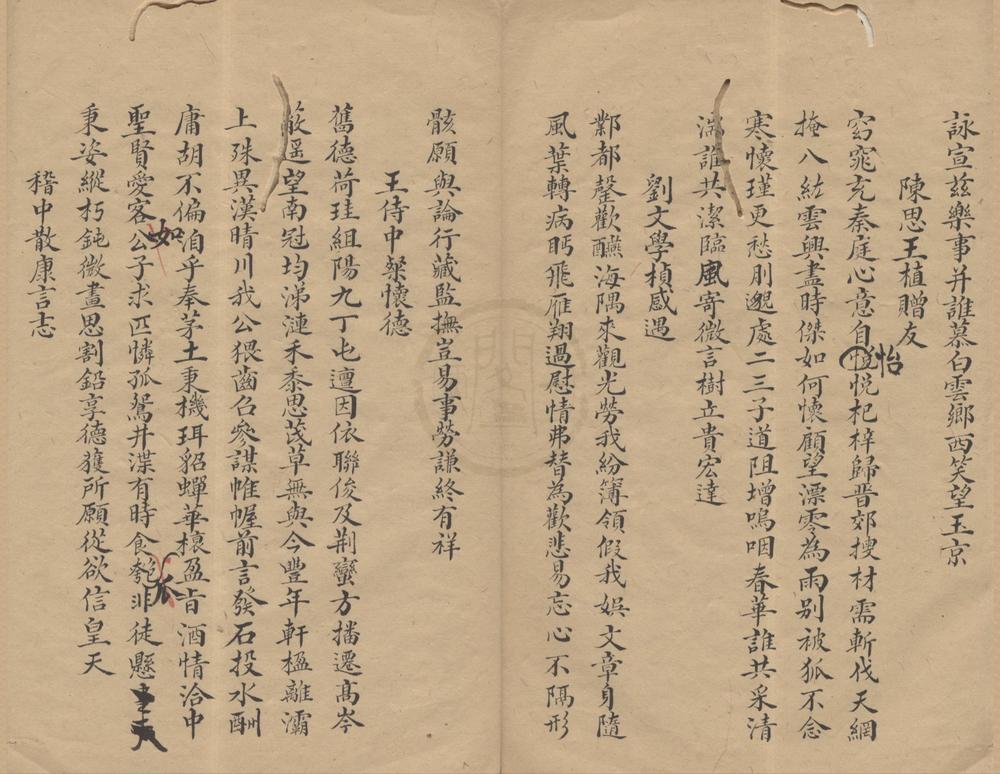 詠宣茲樂事并誰慕白雲鄉西笑望玉京
陳思王植贈友
窈窕充秦庭心意自怡悅杞梓歸晋郊搜材需斬伐天網
掩八紘雲興盡時傑如何懷顧望漂零為雨别被狐不念
寒懷瑾更愁刖邈處二三子道阻增嗚咽春華誰共采清
誰共潔臨風寄微言樹立貴宏達
劉文學楨感遇
鄴都罄歡醼海隅來觀光勞我紛簿領假我娛文章身隨
風葉轉病眄飛雁翔過慰情弗替為歡悲易忘心不隔形
骸願與論行藏監撫豈易事勞謙終有祥
王侍中粲懷德
舊德荷珪組陽九丁屯邅因依聯俊及荆蠻方播遷高岑
敞遥望南冠均涕漣禾黍思茂草無與今豐年軒楹離灞
上殊異漢晴川我公猥齒召參謀帷幄前言發石投水酬
庸胡不偏洎乎奉茅土秉機珥貂蟬華榱盈旨酒情洽中
聖賢愛客如公子求匹憐孤鴛井渫有時食匏瓜非徒懸
秉姿縱朽鈍微晝思割鉛享德獲所願從欲信皇天
稽中散康言志